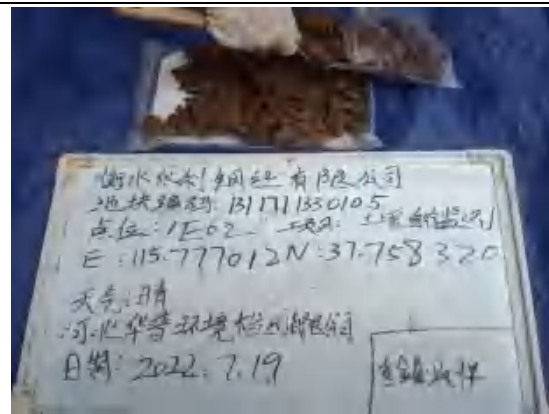 衡水 钢丝有限公司
地块编码:1311711330105
点位:1E02 项目:土壤自行监测
E:115.777012 N:37.758320
天气:晴
河北华普环境检测有限公司
日期:2022.7.19
重金属采样